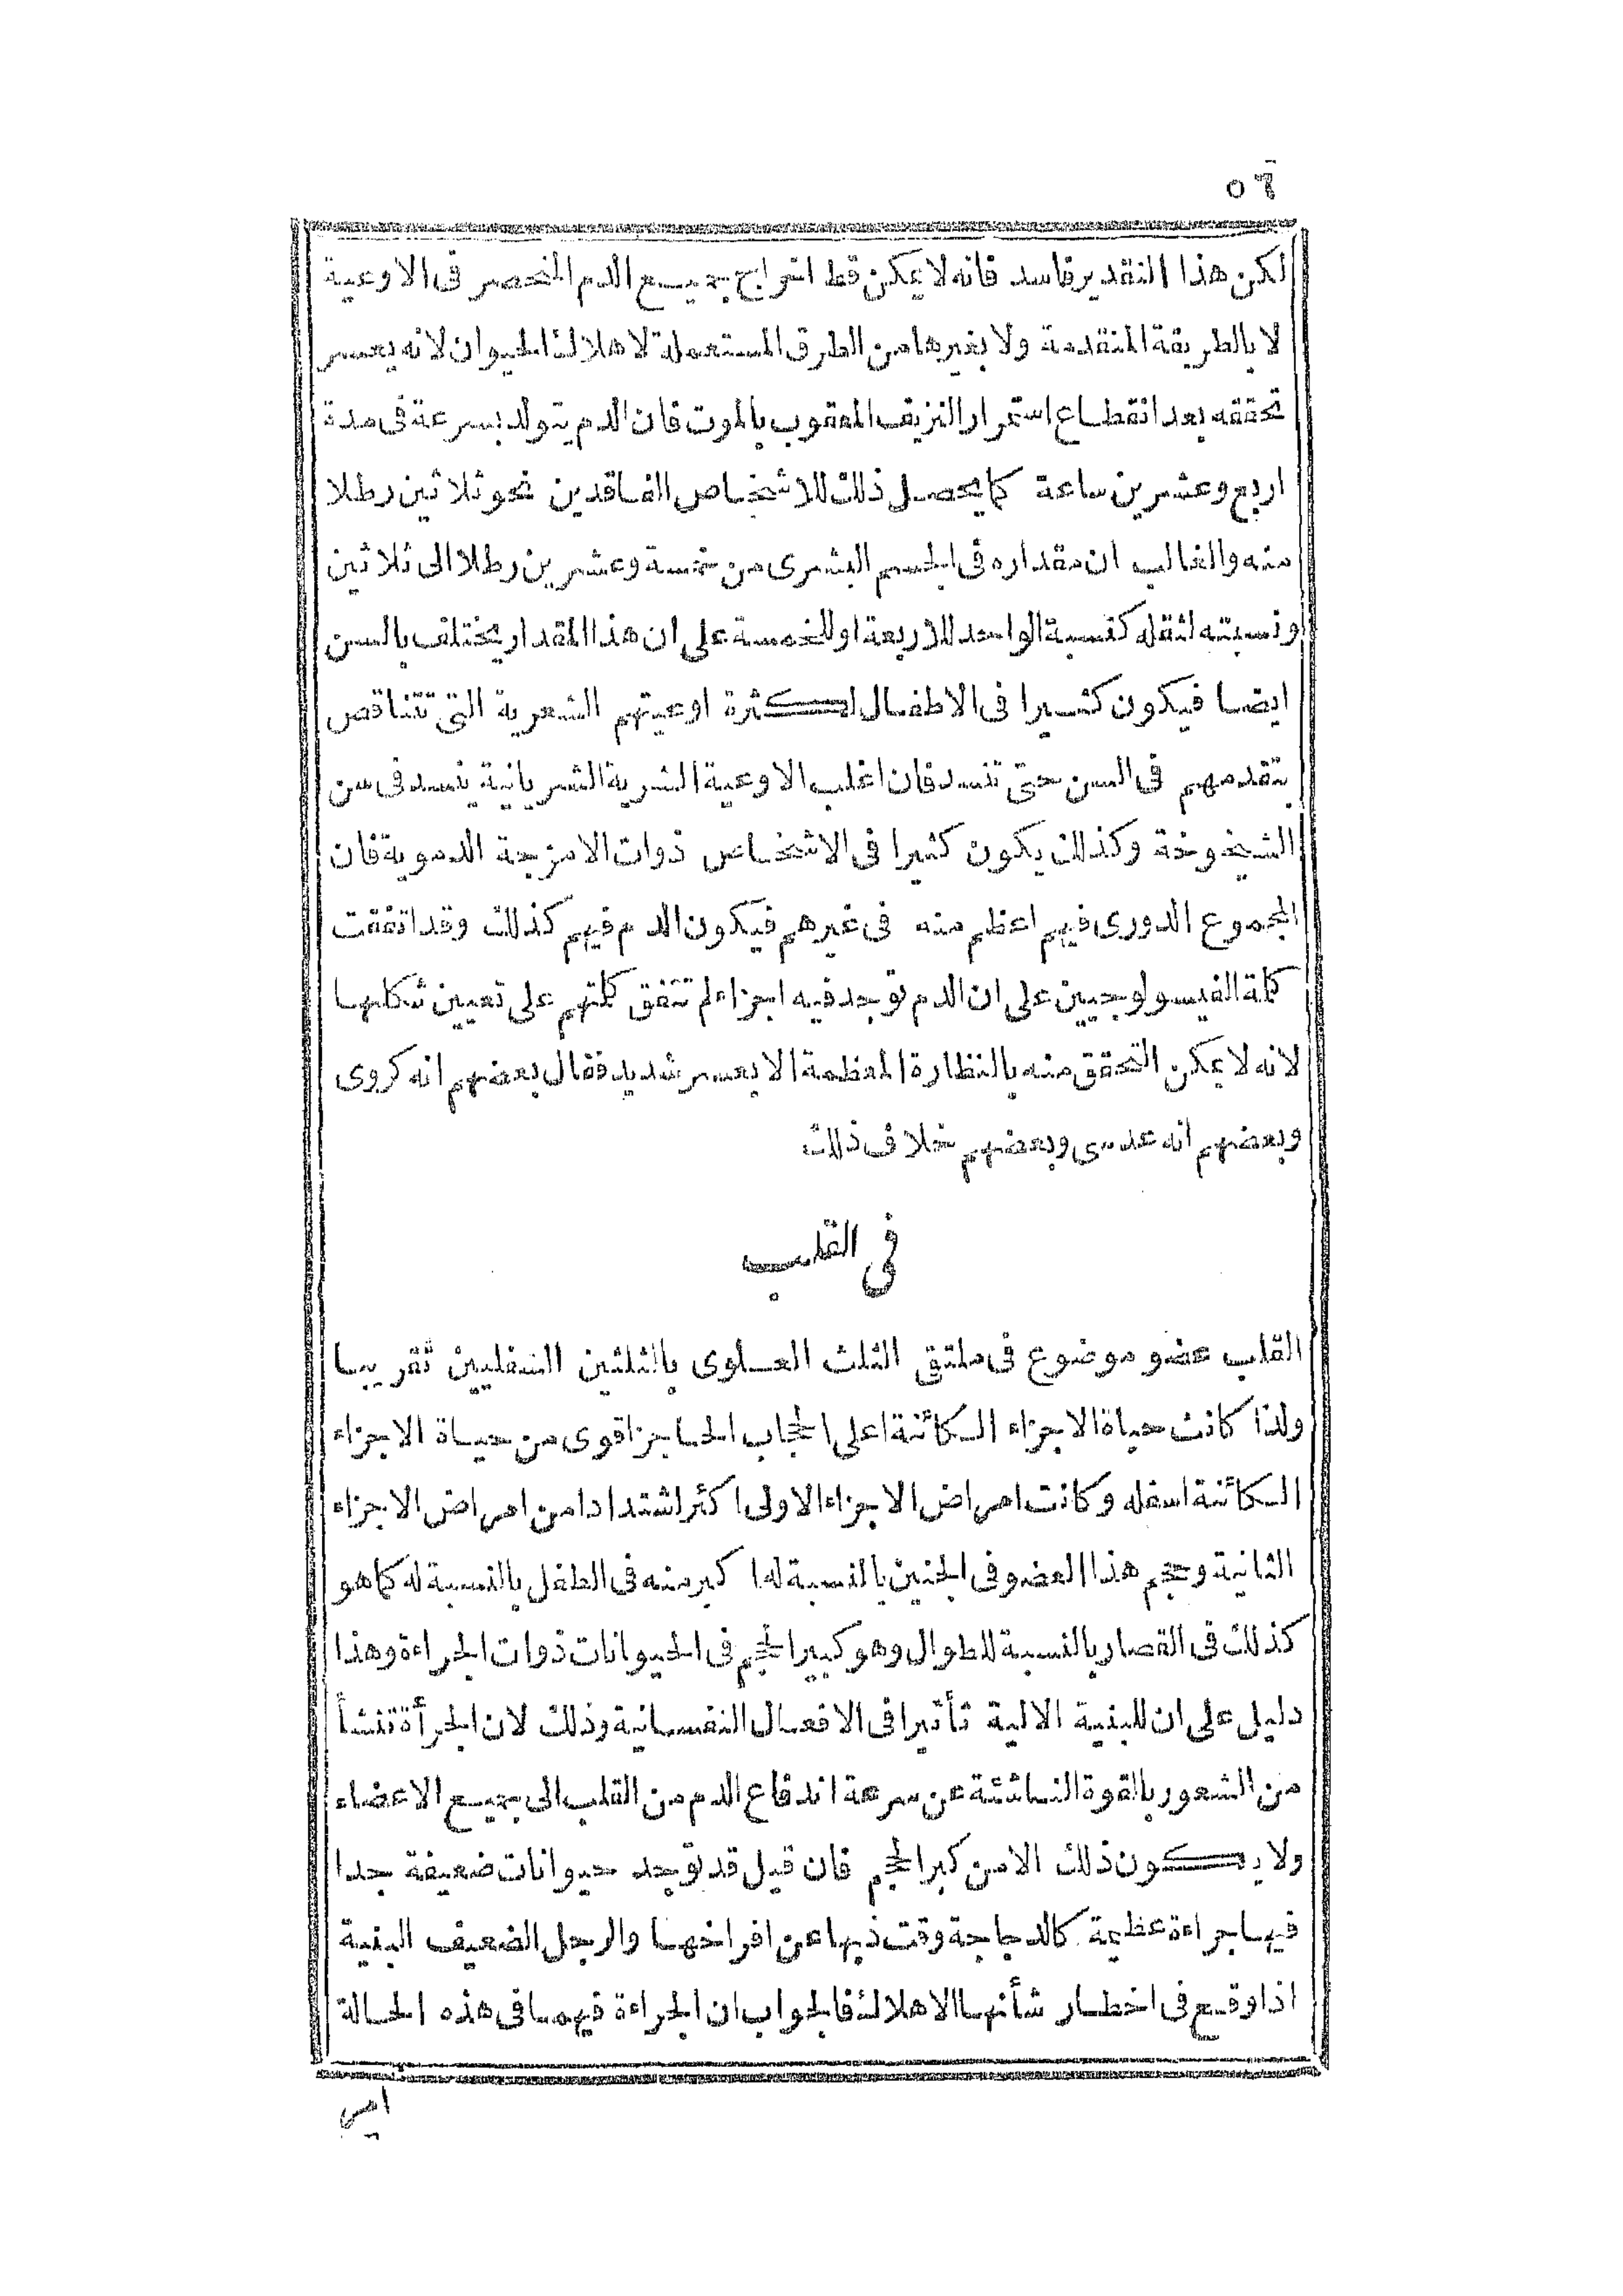 ٥٦
لكن هذا التقدير فاسد فانه لا يمكن قط اخراج جميع الدم المنحصر فى الاوعية
لا بالطريقة المتقدمة ولا بغيرها من الطرق المستعملة لاهلاك الحيوان لانه يعسر
تحققه بعد انقطاع استمرار النزيف المعقوب بالموت فان الدم يتولد بسرعة فى مدة
اربع وعشرين ساعة كما يحصل ذلك للاشخاص الفاقدين نحو ثلاثين رطلا
منه والغالب ان مقداره فى الجسم البشرى من خمسة وعشرين رطلا الى ثلاثين
ونسبته لثقله كنسبة الواحد للاربعة او للخمسة على ان هذا المقدار يختلف بالسن
ايضا فيكون كثيرا فى الاطفال لكثرة اوعيتهم الشعرية التى تتناقص
بتقدمهم فى السن حتى تنسد فان اغلب الاوعية الشرية الشريانية ينسد فى سن
الشيخوخة وكذلك يكون كثيرا فى الاشخاص ذوات الامزجة الدموية فان
المجموع الدورى فيهم اعظم منه فى غيرهم فيكون الدم فيهم كذلك وقد اتفقت
كلمة الفيسولوجيين على ان الدم توجد فيه اجزاء لم تتفق كلمتهم على تعيين شكلها
لانه لا يمكن التحقق منه بالنظارة المعظمة الا بعسر شديد فقال بعضهم انه كروى
وبعضهم انه عدسى وبعضهم خلاف ذلك
فى القلب
القلب عضو موضوع فى ملتقى الثلث العلوى بالثلثين السفليين تقريبا
ولذا كانت حياة الاجزاء الكائنة اعلى الحجاب الحاجز اقوى من حياة الاجزاء
الكائنة اسفله وكانت امراض الاجزاء الاولى اكثر اشتدادا من امراض الاجزاء
الثانية وحجم هذا العضو فى الجنين بالنسبة له اكبر منه فى الطفل بالنسبة له كما هو
كذلك فى القصار بالنسبة للطوال وهو كبير الحجم فى الحيوانات ذوات الجراءة وهذا
دليل على ان للبنية الالية تأثيرا فى الافعال النفسانية وذلك لان الجرأة تنشأ
من الشعور بالقوة الناشئة عن سرعة اندفاع الدم من القلب الى جميع الاعضاء
ولا يكون ذلك الا من كبر الحجم فان قيل قد توجد حيوانات ضعيفة جدا
فيها جراءة عظيمة كالدجاجة وقت ذبها عن افراخها والرجل الضعيف البنية
اذا وقع فى اخطار شأنها الاهلاك فالجواب ان الجراءة فيهما فى هذه الحالة